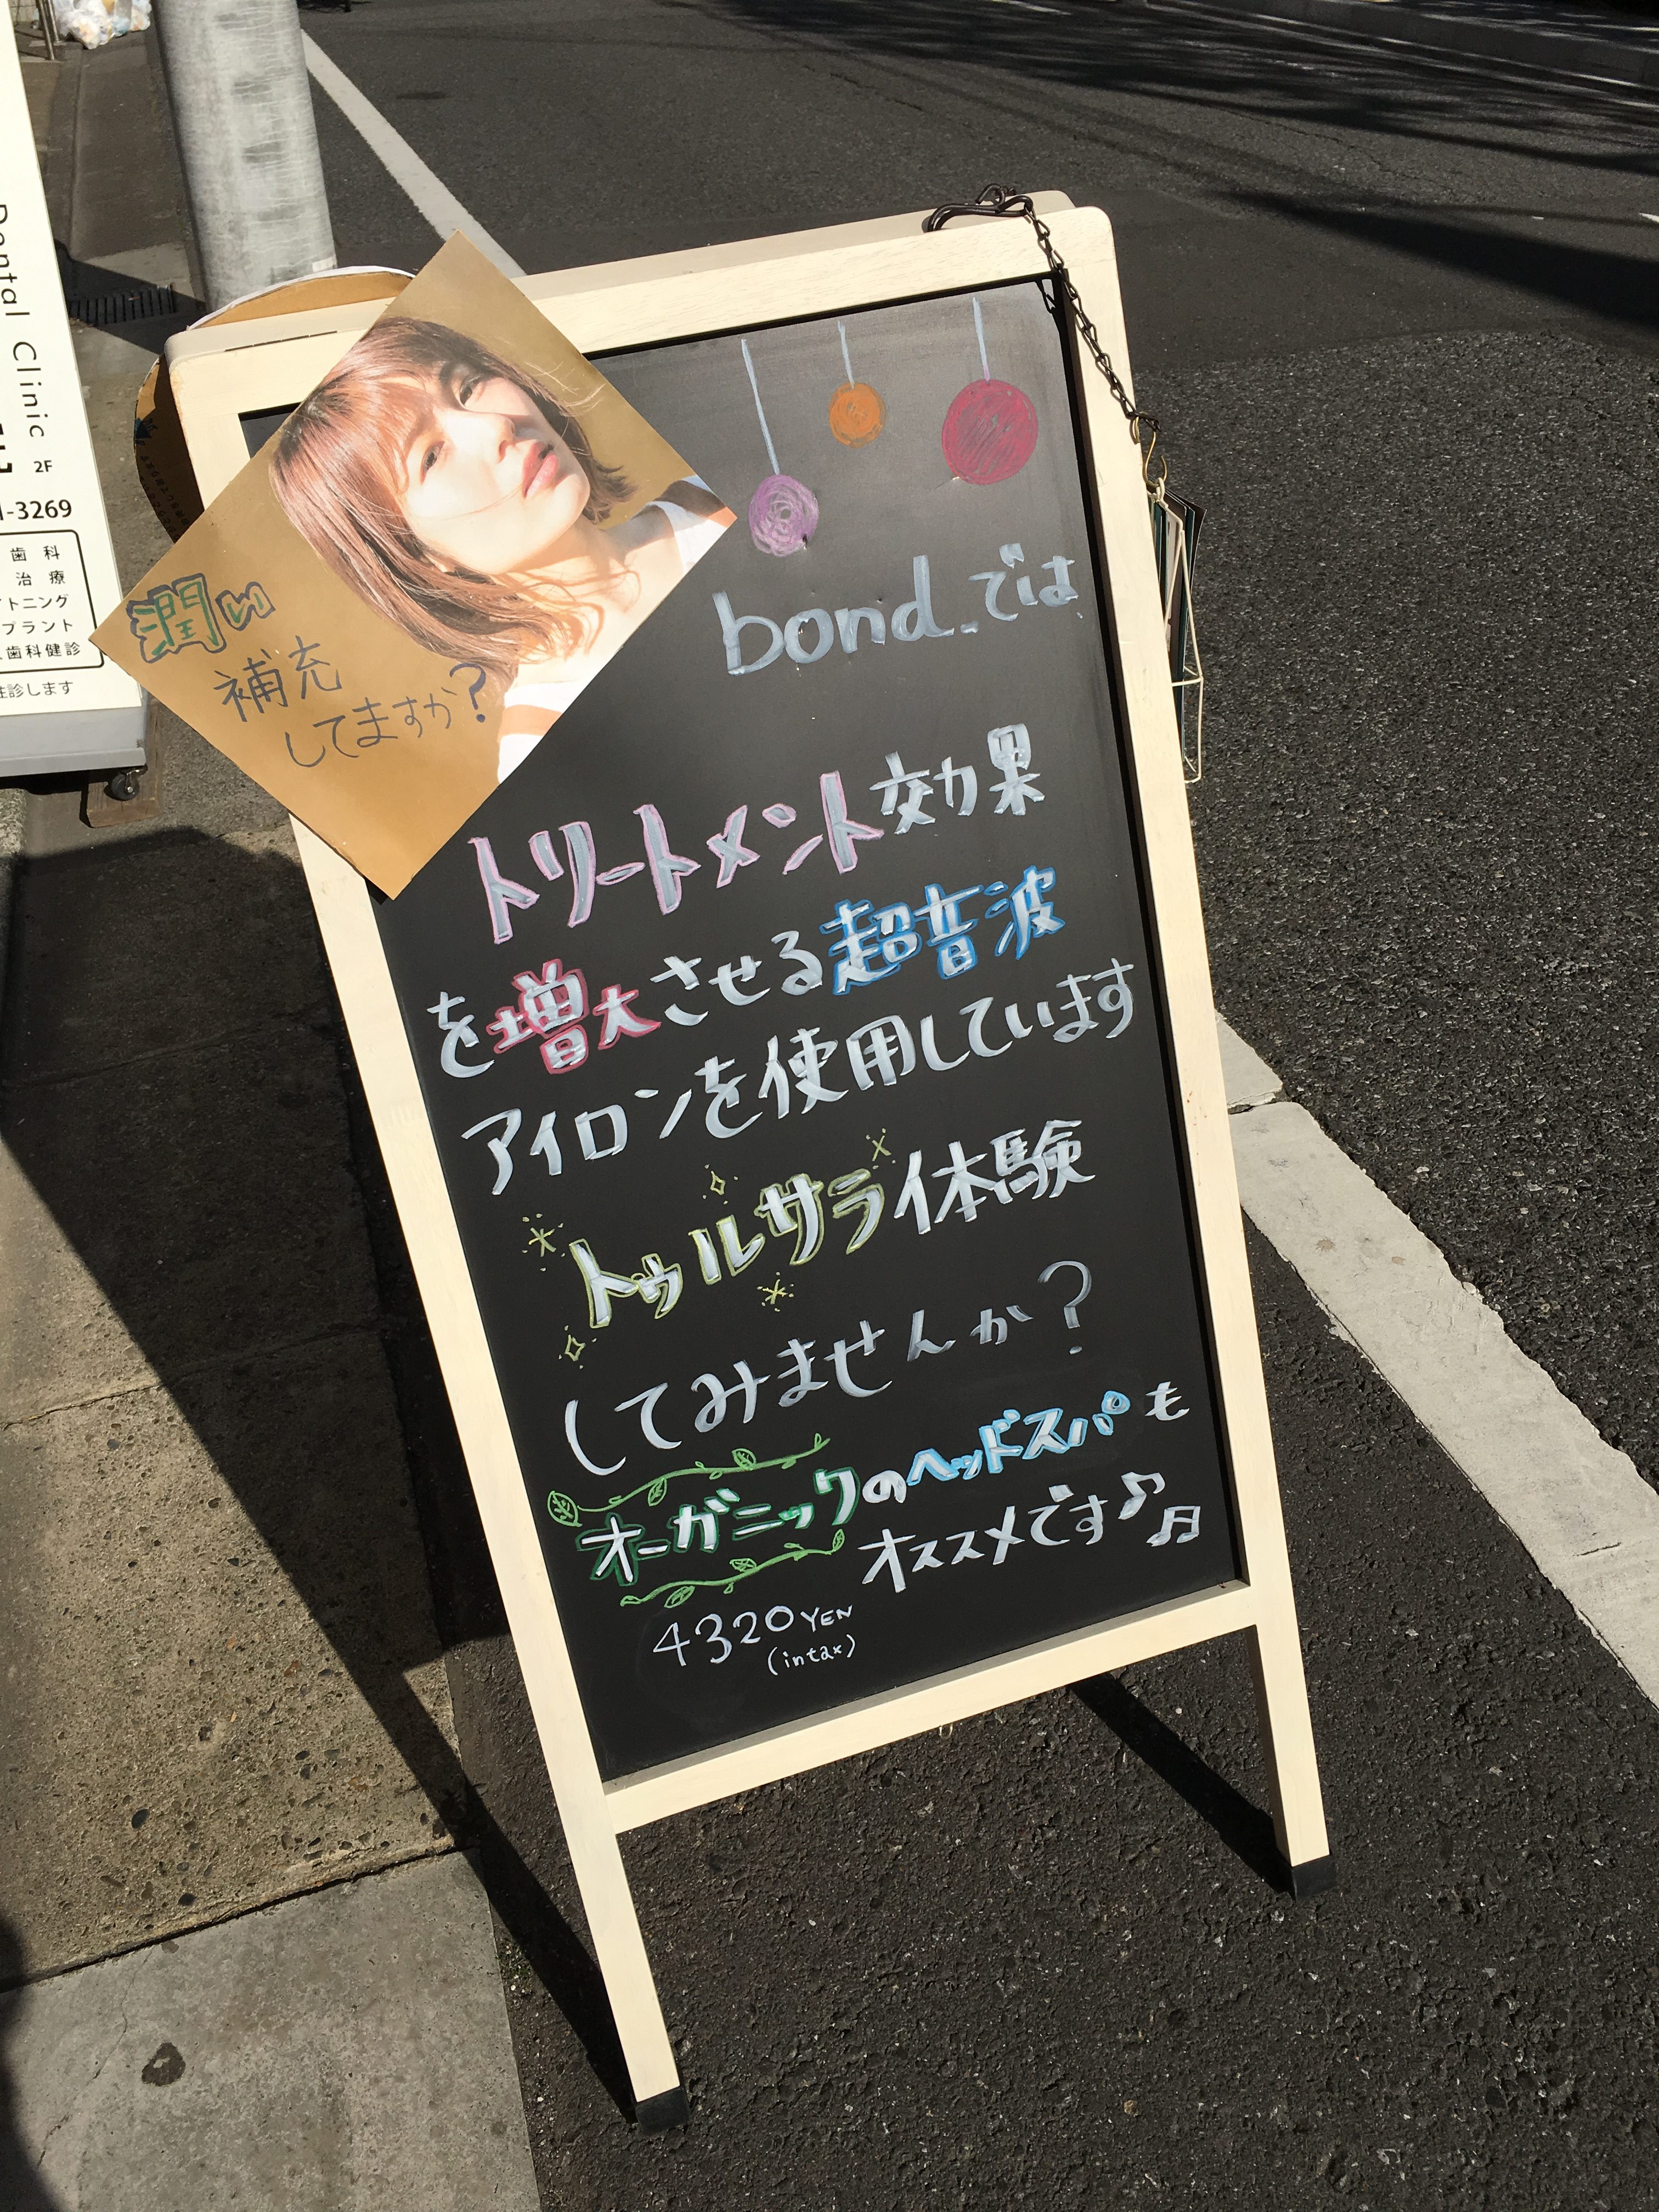 Dental Clinic
2F
-3269
歯科
治療
トニング
プラント
歯科健診
診します
潤い
補充
してますか?
bond.では
トリートメント効果
を増大させる超音波
アイロンを使用しています
トゥルサラ体験
してみませんか?
オーガニックのヘッドスパも
オススメです♪♬
4320YEN
(intax)